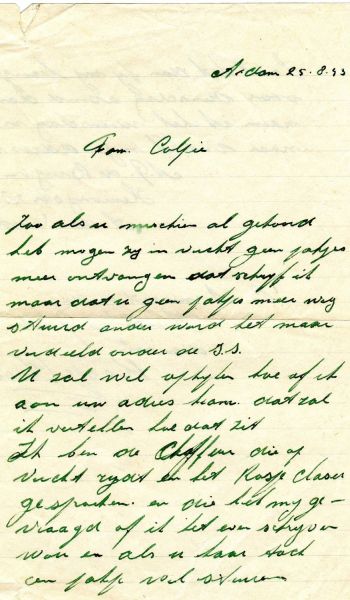 A-dam 25-8-43
Fam. Colpie
Zoo als u mischien al gehoord
heb mogen zij in vucht geen pakjes
meer ontvangen dat schryf ik
maar dat u geen pakjes meer weg
stuurd anders word het maar
verdeeld onder de S.S.
U zal wel ophyken hoe of ik
aan uw adres kom. dat zal
ik vertellen hoe dat zit
Ik ben de Choffeur die op
Vucht rydt en het Roosje
gesproken. en die het my ge-
vraagd of ik het even schryven
wou en als u haar toch
een pakje wil sturen